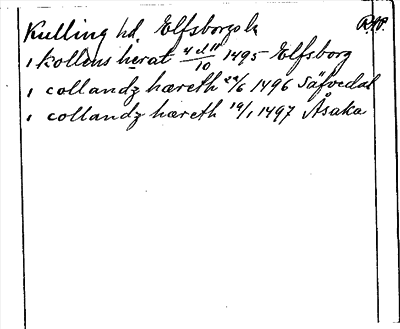 Kulling hd. Elfsborgs l. R.A.P.
i kollens herat 4 el 11/10 1495 Elfsborg
i collandz hæreth 22/6 1496 Säfvedal
i collandz hæreth 19/1 1497 Åsaka